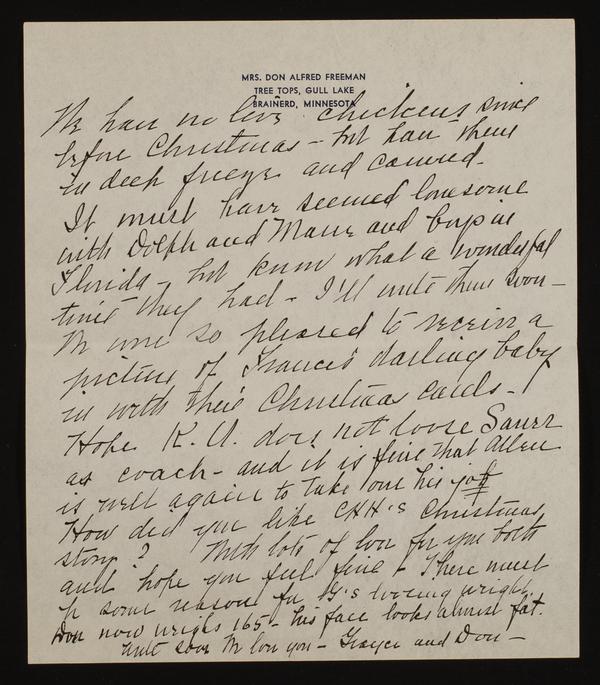 MRS. DON ALFRED FREEMAN
TREE TOPS, GULL LAKE
BRAINERD, MINNESOTA
We have no live chickens since
before Christmas - but have them
in deep freeze and canned.
It must have seemed lonesome
with Dolph and Marie and boys in
Florida - but know what a wonderful
time they had - I'll write them soon -
We were so pleased to receive a
picture of Frances darling baby
in with their Christmas cards -
Hope K.U. does not loose Sauer
as coach - and it is fine that Allen
is well again to take over his job
How did you like CHH's Christmas
story? With lots of love for you both
and hope you feel fine - There must
be some reason for G's losing weight.
Don now weighs 165 - his face looks almost fat.
Write soon We love you - Grayce and Don -